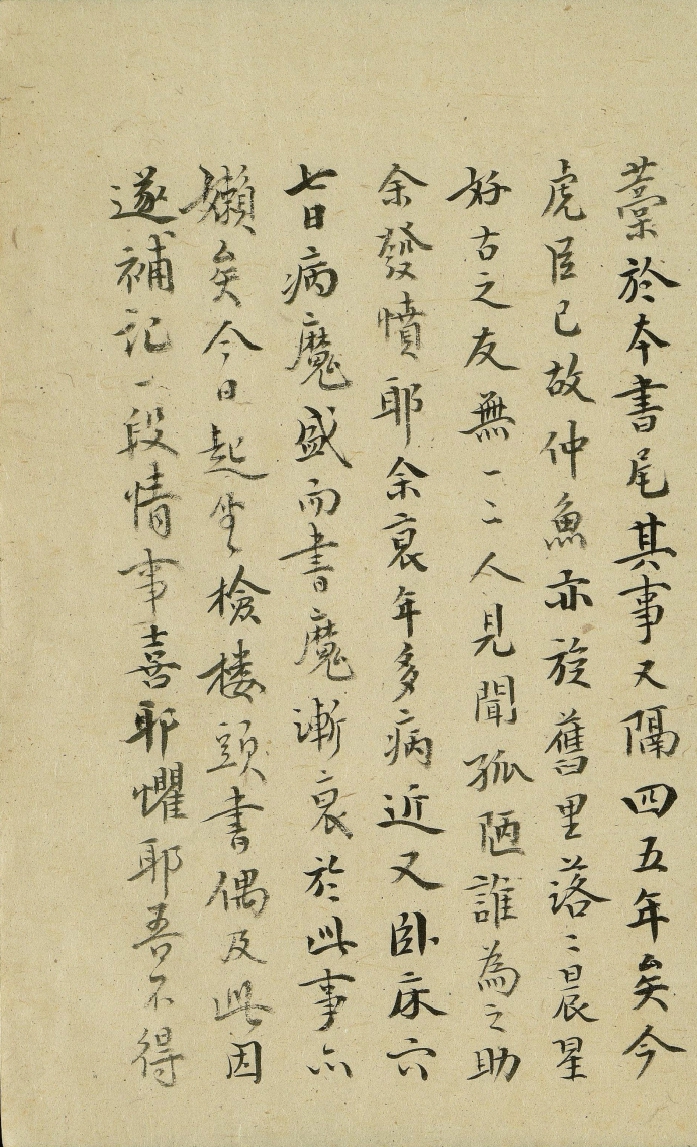 藁於本書尾其事又隔四五年矣今
虎臣已故仲魚亦旋舊里落〻晨星
好古之友無一二人見聞孤陋誰為之助
余發憤耶余衰年多病近又臥床六
七日病魔盛而書魔漸衰於此事亦
嬾矣今日起坐檢樓頭書偶及此因
遂補記一段情事喜耶懼耶吾不得